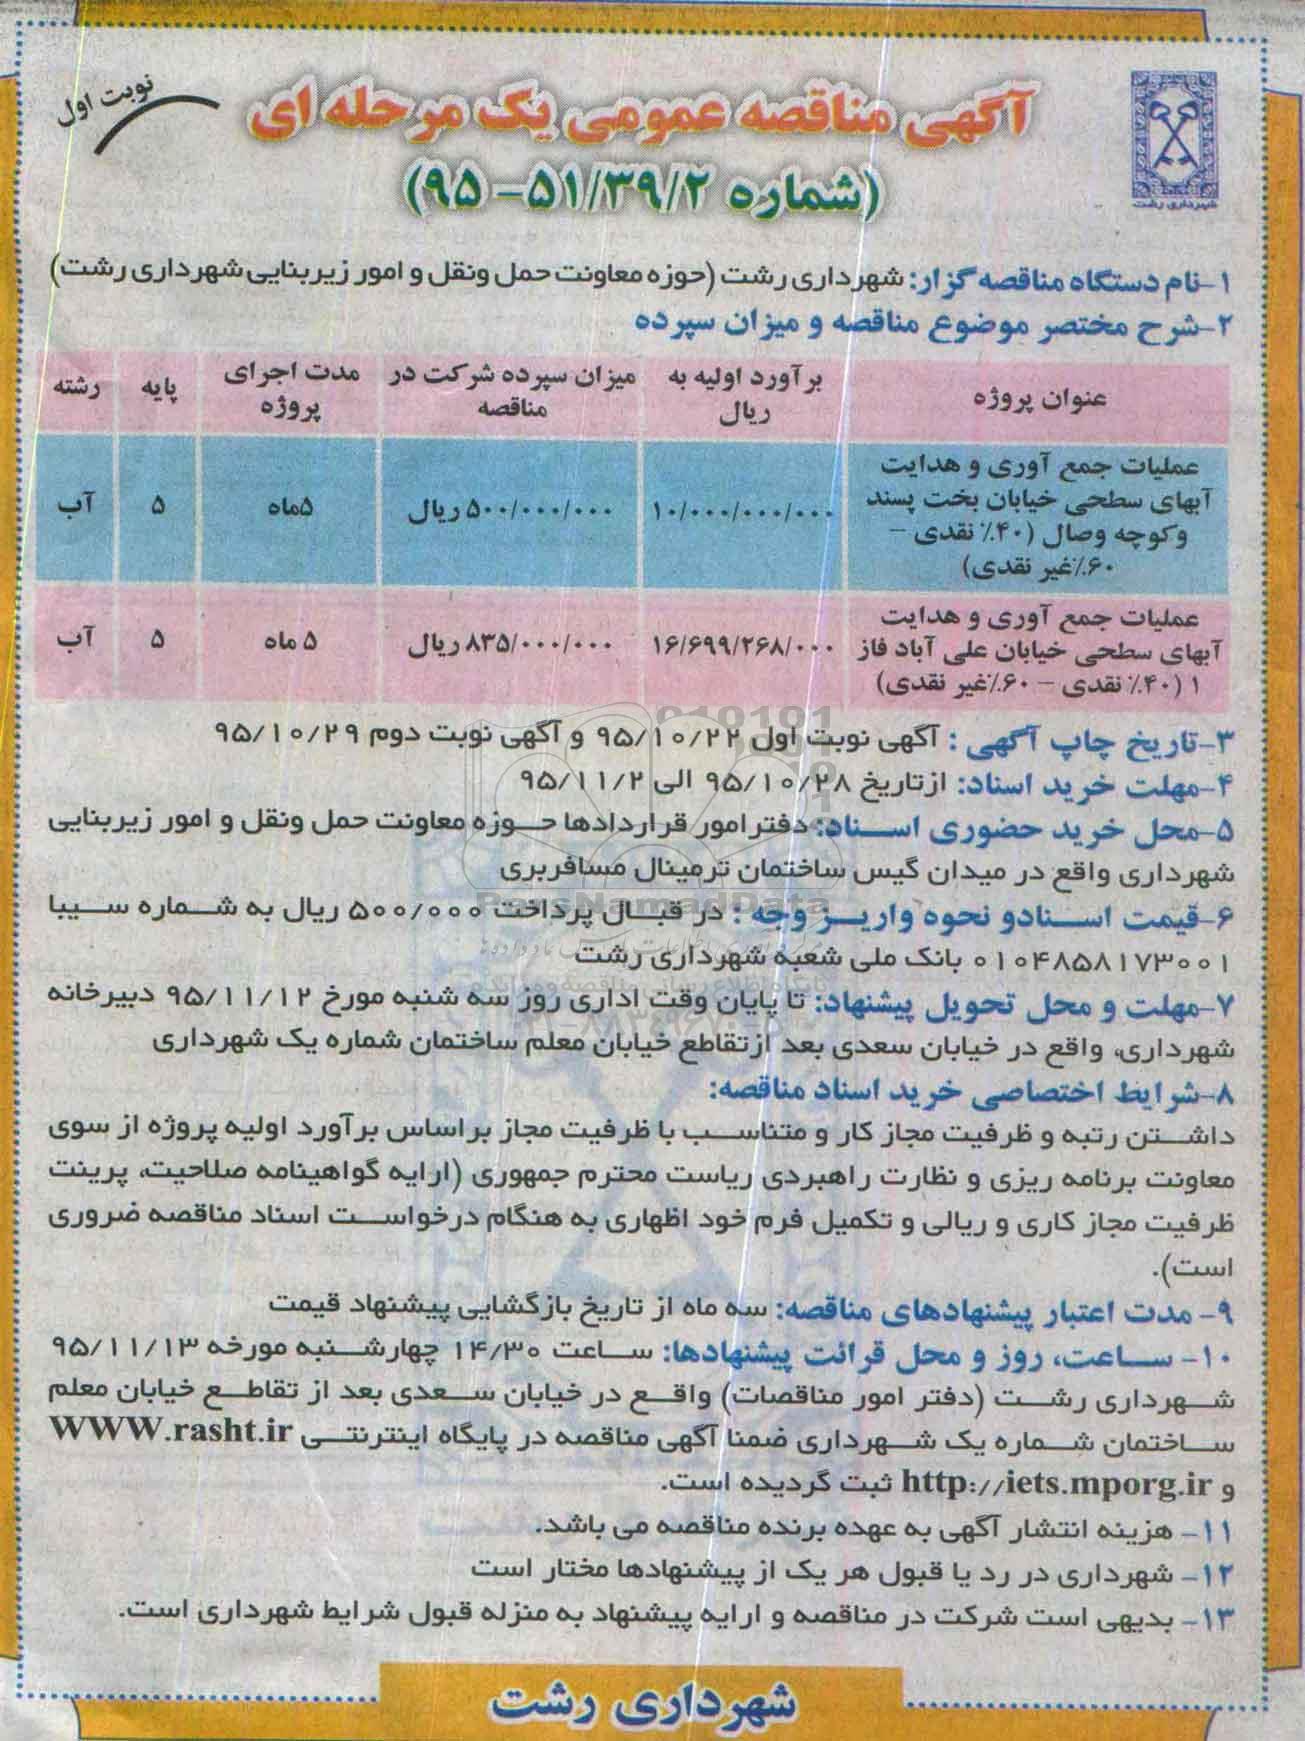 نوبت اول
آگهی مناقصه عمومی یک مرحله ای
(شماره ۵۱/۳۹/۲- ۹۵)
شهرداری رشت
۱-نام دستگاه مناقصه گزار: شهرداری رشت (حوزه معاونت حمل ونقل و امور زیربنایی شهرداری رشت)
۲-شرح مختصر موضوع مناقصه و میزان سپرده
عنوان پروژه | برآورد اولیه به ریال | میزان سپرده شرکت در مناقصه | مدت اجرای پروژه | پایه | رشته
عملیات جمع آوری و هدایت آبهای سطحی خیابان بخت پسند وکوچه وصال (۴۰٪ نقدی – ۶۰٪غیر نقدی) | ۱۰/۰۰۰/۰۰۰/۰۰۰ | ۵۰۰/۰۰۰/۰۰۰ ریال | ۵ماه | ۵ | آب
عملیات جمع آوری و هدایت آبهای سطحی خیابان علی آباد فاز ۱ (۴۰٪ نقدی – ۶۰٪غیر نقدی) | ۱۶/۶۹۹/۲۶۸/۰۰۰ | ۸۳۵/۰۰۰/۰۰۰ ریال | ۵ ماه | ۵ | آب
۳-تاریخ چاپ آگهی : آگهی نوبت اول ۹۵/۱۰/۲۲ و آگهی نوبت دوم ۹۵/۱۰/۲۹
۴-مهلت خرید اسناد: ازتاریخ ۹۵/۱۰/۲۸ الی ۹۵/۱۱/۲
۵-محل خرید حضوری اسناد: دفترامور قراردادها حوزه معاونت حمل ونقل و امور زیربنایی
شهرداری واقع در میدان گیس ساختمان ترمینال مسافربری
۶-قیمت اسنادو نحوه واریز وجه : در قبال پرداخت ۵۰۰/۰۰۰ ریال به شماره سیبا
۰۱۰۴۸۵۸۱۷۳۰۰۱ بانک ملی شعبه شهرداری رشت
ParsNamadData
۷-مهلت و محل تحویل پیشنهاد: تا پایان وقت اداری روز سه شنبه مورخ ۹۵/۱۱/۱۲ دبیرخانه
شهرداری، واقع در خیابان سعدی بعد ازتقاطع خیابان معلم ساختمان شماره یک شهرداری
۸-شرایط اختصاصی خرید اسناد مناقصه:
داشتن رتبه و ظرفیت مجاز کار و متناسب با ظرفیت مجاز براساس برآورد اولیه پروژه از سوی
معاونت برنامه ریزی و نظارت راهبردی ریاست محترم جمهوری (ارایه گواهینامه صلاحیت، پرینت
ظرفیت مجاز کاری و ریالی و تکمیل فرم خود اظهاری به هنگام درخواست اسناد مناقصه ضروری
است).
۹- مدت اعتبار پیشنهادهای مناقصه: سه ماه از تاریخ بازگشایی پیشنهاد قیمت
۱۰- ساعت، روز و محل قرائت پیشنهادها: ساعت ۱۴/۳۰ چهارشنبه مورخه ۹۵/۱۱/۱۳
شهرداری رشت (دفتر امور مناقصات) واقع در خیابان سعدی بعد از تقاطع خیابان معلم
ساختمان شماره یک شهرداری ضمنا آگهی مناقصه در پایگاه اینترنتی WWW.rasht.ir
و http://iets.mporg.ir ثبت گردیده است.
۱۱- هزینه انتشار آگهی به عهده برنده مناقصه می باشد.
۱۲- شهرداری در رد یا قبول هر یک از پیشنهادها مختار است
۱۳- بدیهی است شرکت در مناقصه و ارایه پیشنهاد به منزله قبول شرایط شهرداری است.
شهرداری رشت